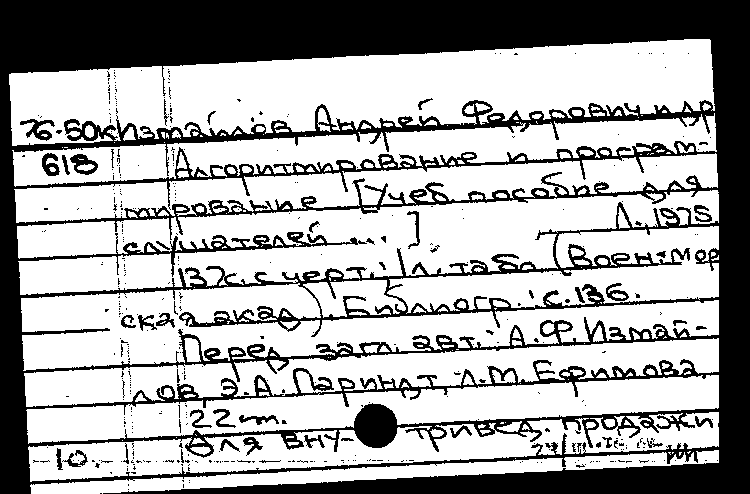 76-50к Измайлов, Андрей Федорович и др
618 Алгоритмирование и програм-
мирование [Учеб. пособие для
слушателей ...] Л., 1975.
137с. с черт.; 1 л. табл. (Воен.-мор
ская акад.). Библиогр.: с. 136.
Перед загл. авт.: А.Ф. Измай-
лов, Э.А. Париндт, Л.М. Ефимова.
22 см.
Для вну- тривед. продажи
10.